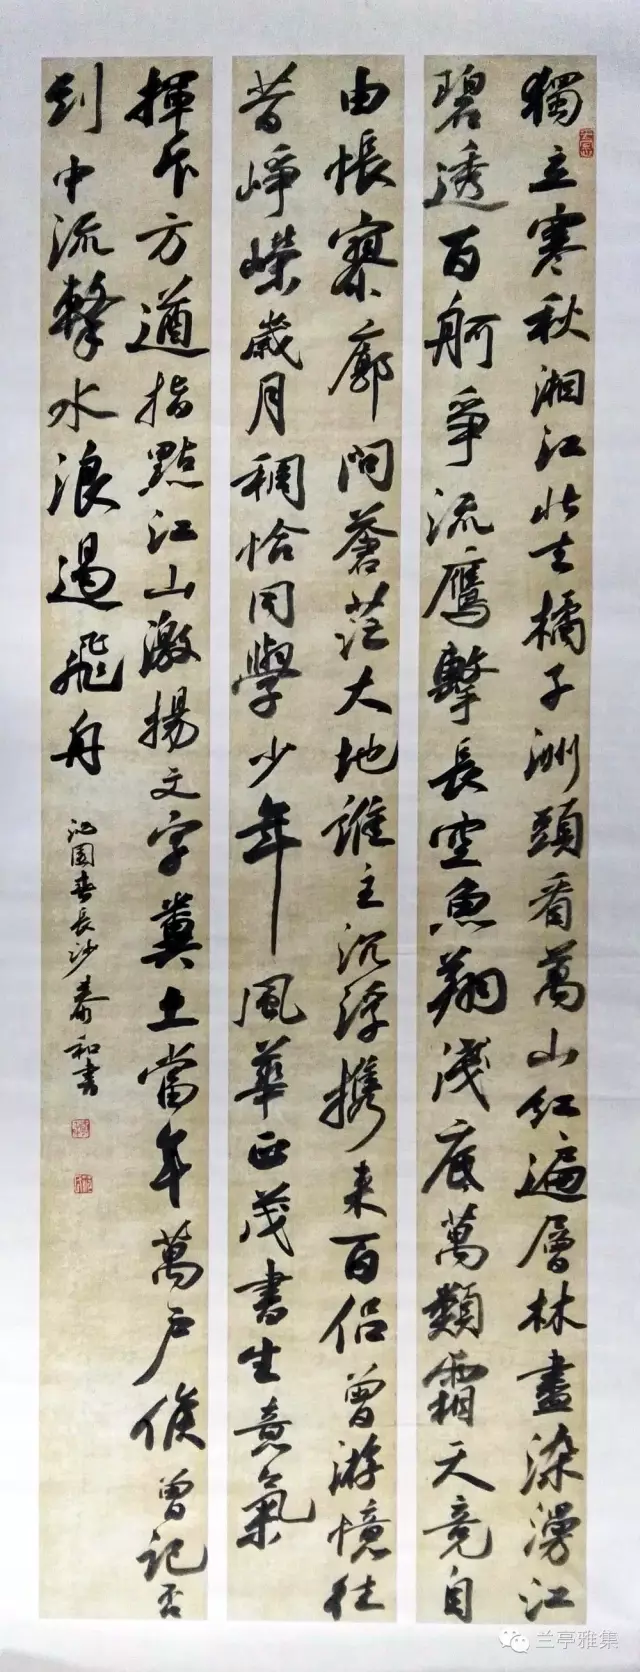 獨立寒秋湘江北去橘子洲頭看萬山紅遍層林盡染漫江
碧透百舸爭流鷹擊長空魚翔淺底萬類霜天竞自
由悵寥廓問蒼茫大地誰主沉浮携来百侶曾游憶往
昔崢嶸歲月稠恰同學少年風華正茂書生意氣
揮斥方遒指點江山激揚文字糞土當年萬戶侯曾記否
到中流擊水浪遏飛舟
沁園春長沙 和書
兰亭雅集